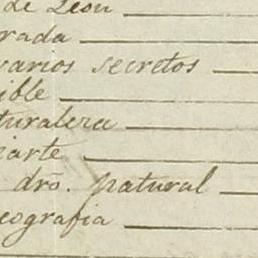 de Leon
rada
varios secretos
ible
turaleza
arte
dro. natural
eografia